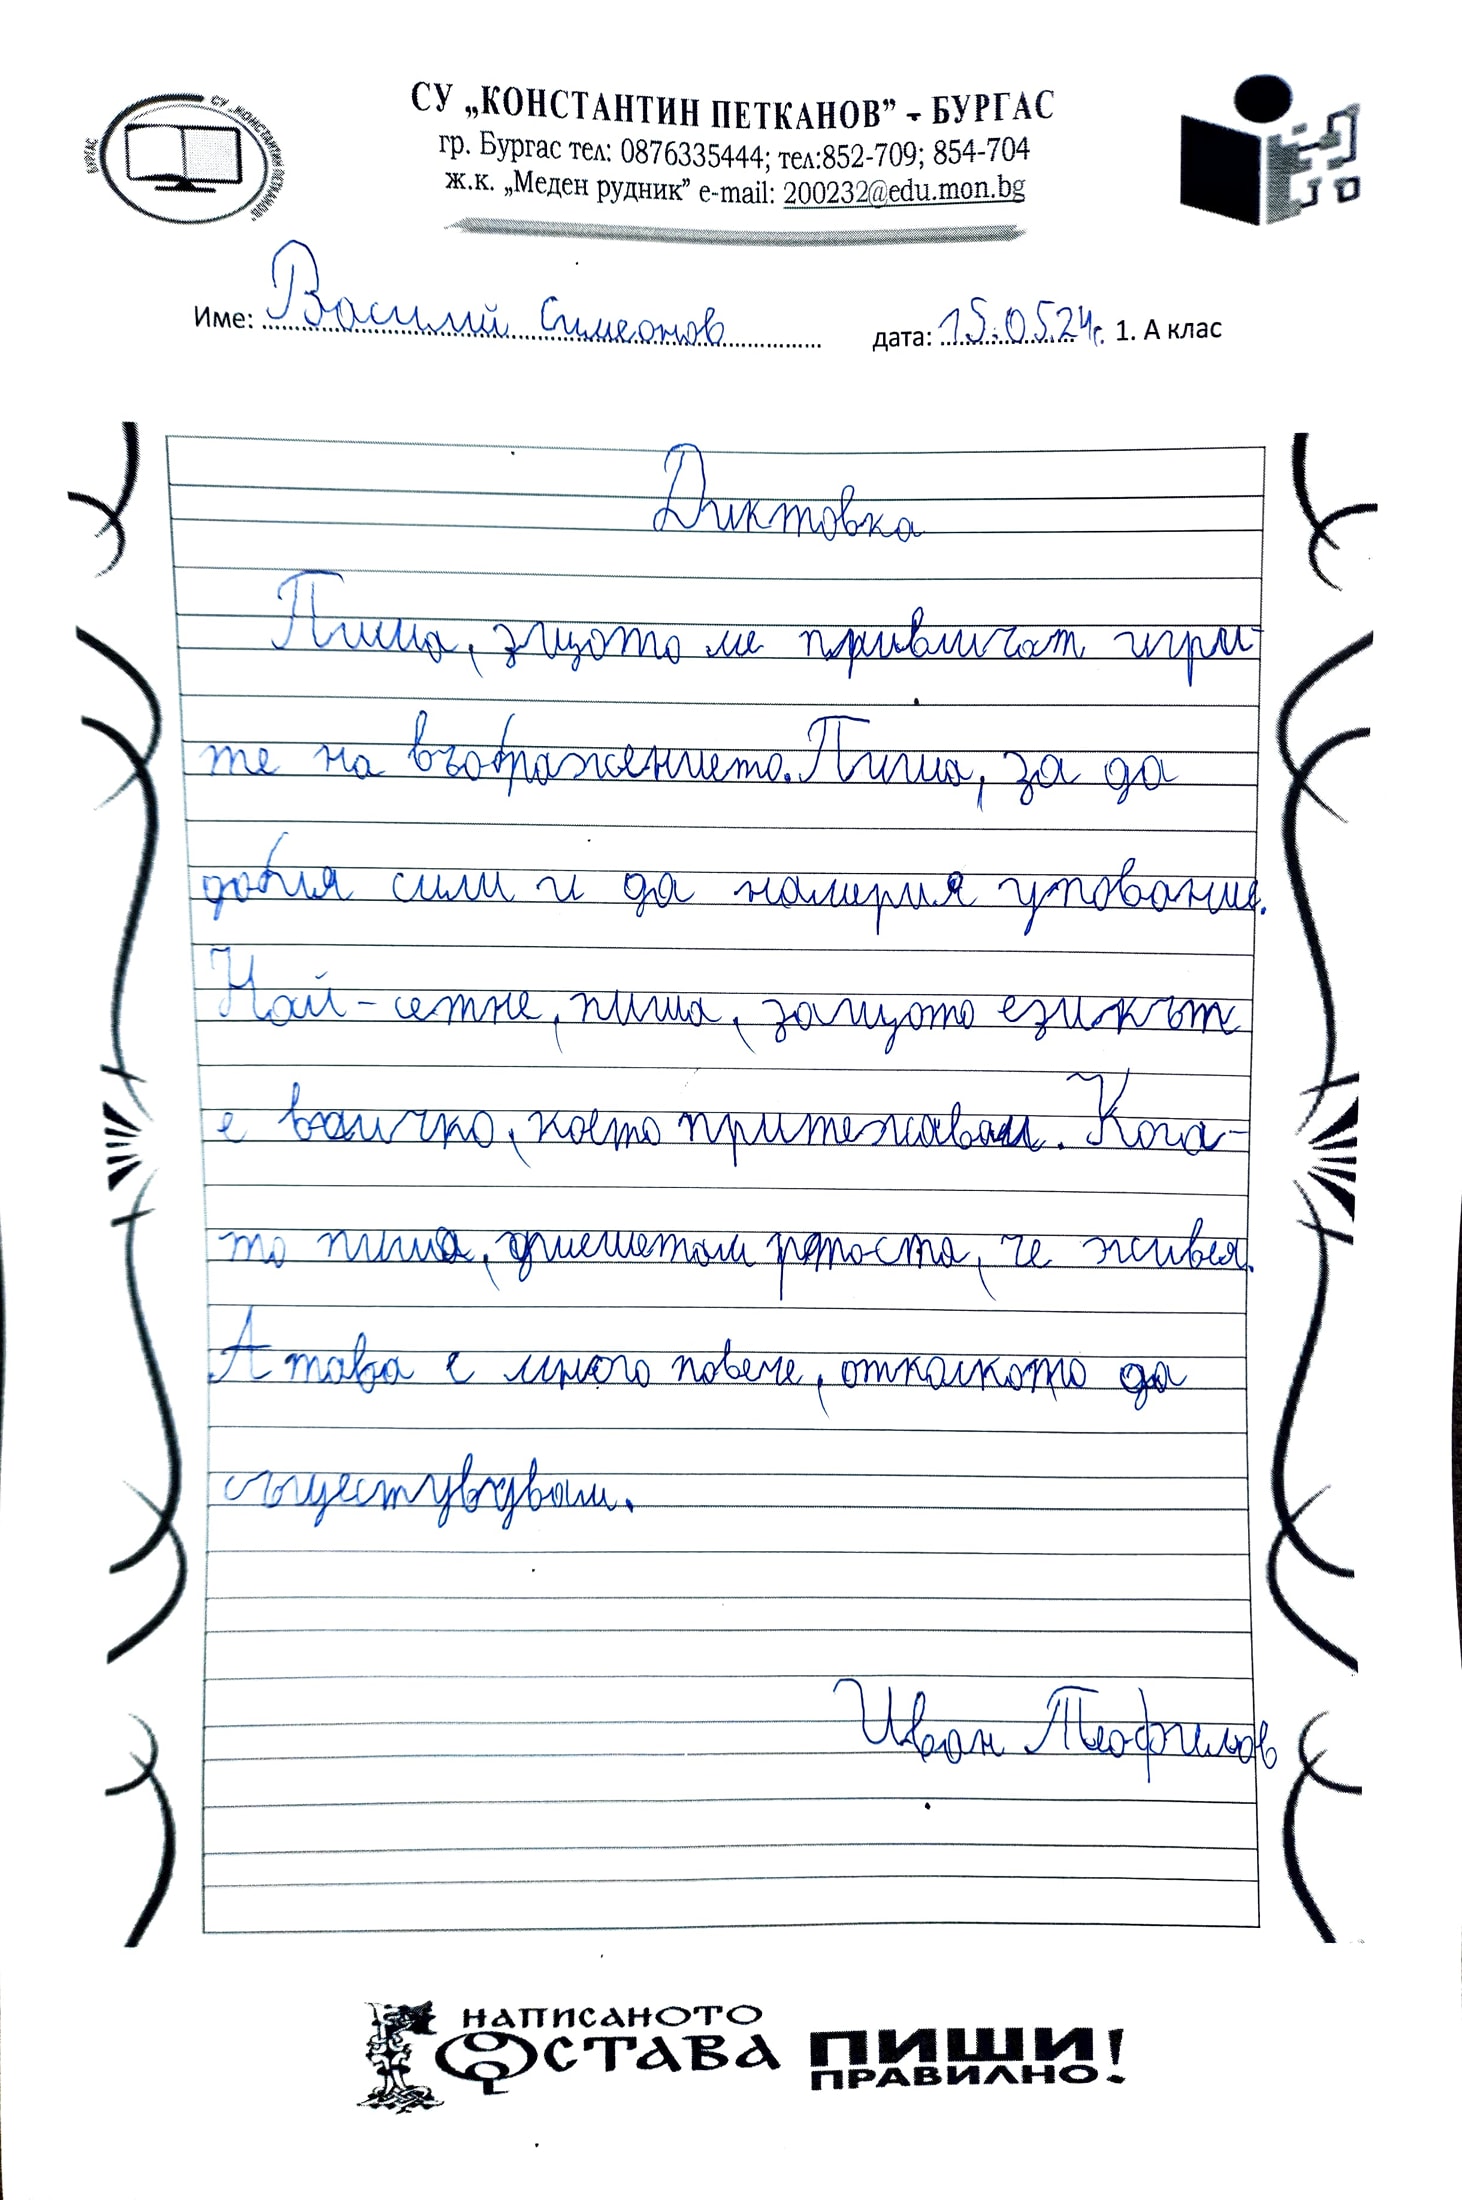 СУ „КОНСТАНТИН ПЕТКАНОВ” - БУРГАС
гр. Бургас тел: 0876335444; тел:852-709; 854-704
ж.к. „Меден рудник” e-mail: 200232@edu.mon.bg
БУРГАС СУ „КОНСТАНТИН ПЕТКАНОВ”
Име: Василий Симеонов дата: 15.05.24г. 1. А клас
Диктовка
Пиша, защото ме привличат игри-
те на въображението. Пиша, за да
добия сили и да намеря упование.
Най-сетне, пиша, защото езикът
е всичко, което притежавам. Кога-
то пиша, усещам радостта, че живея.
А това е много повече, отколкото да
съществувам.
Иван Теофилов
НАПИСАНОТО
ОСТАВА ПИШИ
ПРАВИЛНО!